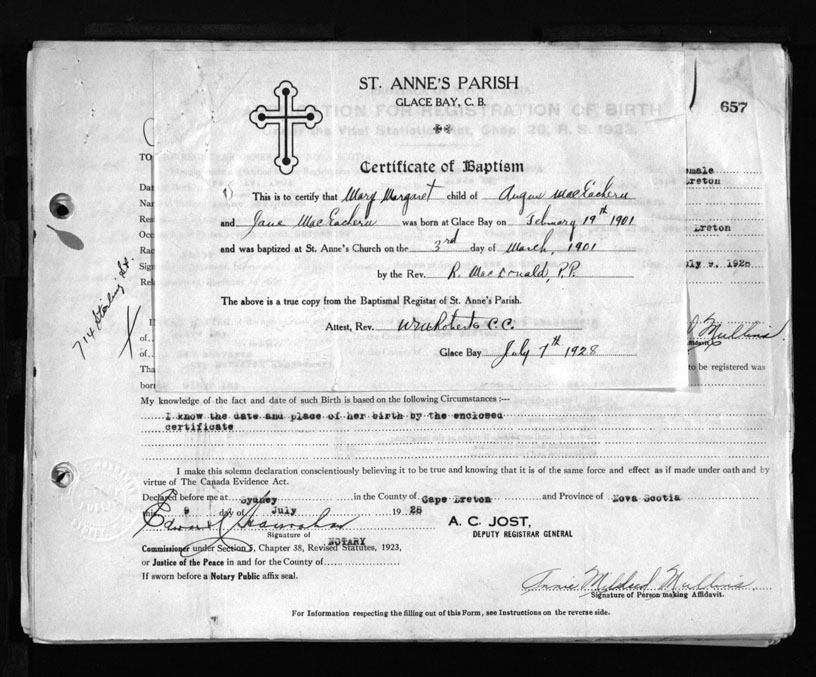 ST. ANNE'S PARISH
GLACE BAY, C. B.
657
TION FOR REGISTRATION OF BIRTH
Certificate of Baptism
This is to certify that Mary Margaret child of Angus MacEachern
and Jane MacEachern was born at Glace Bay on February 19th 1901
and was baptized at St. Anne's Church on the 3rd day of March, 1901
by the Rev. R. MacDonald, P.P.
The above is a true copy from the Baptismal Registar of St. Anne's Parish.
Attest, Rev. C.C.
Glace Bay July 7th 1928
TO
Da
Na
Re
Oc
Rac
Sig
Rel
male
reton
reton
ly 9, 1928
714 Sterling St.
Mullins
of
of
Tha
to be registered was
bor
My knowledge of the fact and date of such Birth is based on the following Circumstances :—
I know the date and place of her birth by the enclosed
certificate
I make this solemn declaration conscientiously believing it to be true and knowing that it is of the same force and effect as if made under oath and by
virtue of The Canada Evidence Act.
Declared before me at Sydney in the County of Cape Breton and Province of Nova Scotia
this 9 day of July 1928
A. C. JOST,
DEPUTY REGISTRAR GENERAL
Signature of
NOTARY
Commissioner under Section 5, Chapter 38, Revised Statutes, 1923,
or Justice of the Peace in and for the County of
If sworn before a Notary Public affix seal.
Annie Mildred Mullins
Signature of Person making Affidavit.
For Information respecting the filling out of this Form, see Instructions on the reverse side.